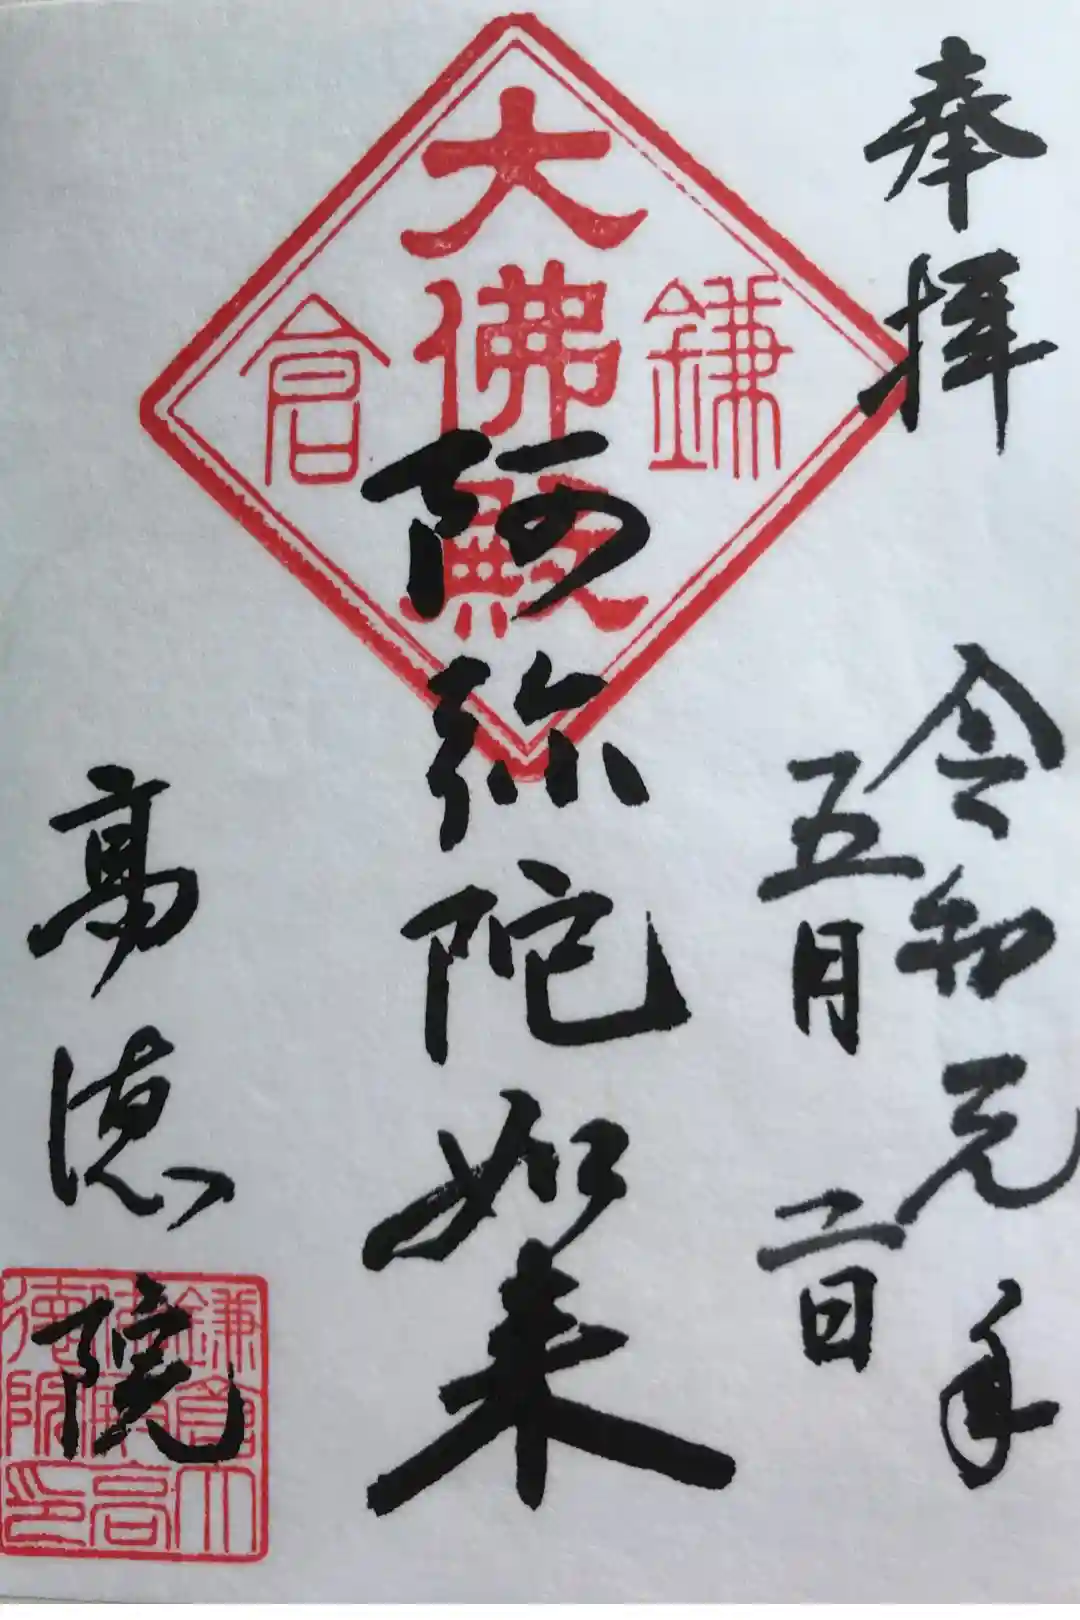 奉拝
令和元年
五月二日
鎌倉
大佛殿
阿弥陀如来
高徳院
鎌倉大
佛殿高
徳院印